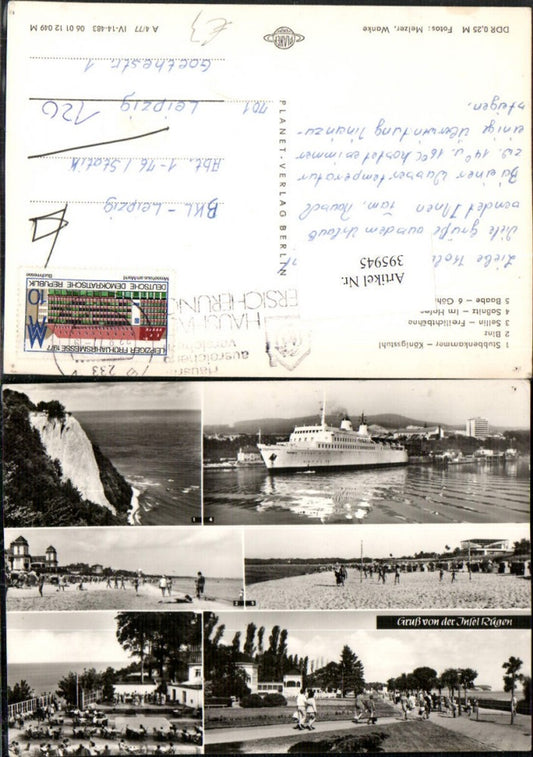 1 Stubbenkammer – Königsstuhl
2 Binz
3 Sellin – Freilichtbühne
4 Saßnitz – Im Hafen
5 Baabe – 6 Göhren
Artikel Nr.
395945
Liebe
Viele Grüße aus dem Urlaub
sendet Ihnen fam.
Bei einer Wassertemperatur
14° u. 16°C
einige Überwindung hinzu-
steigen.
PLANET-VERLAG BERLIN
LEIPZIGER FRÜHJAHRSMESSE 1977
10
DEUTSCHE DEMOKRATISCHE REPUBLIK
Messehaus am Markt
Buchmesse
HAUS
ERSICHERUNG
BKL – Leipzig
Abt. 1-76 / Statik
701 Leipzig
120
Goethestr. 1
DDR 0,25 M Fotos: Melzer, Wanke
PLANET
A 4/77 IV-14-483 06 01 12 049 M
€3
1
4
2
5
Gruß von der Insel Rügen
3